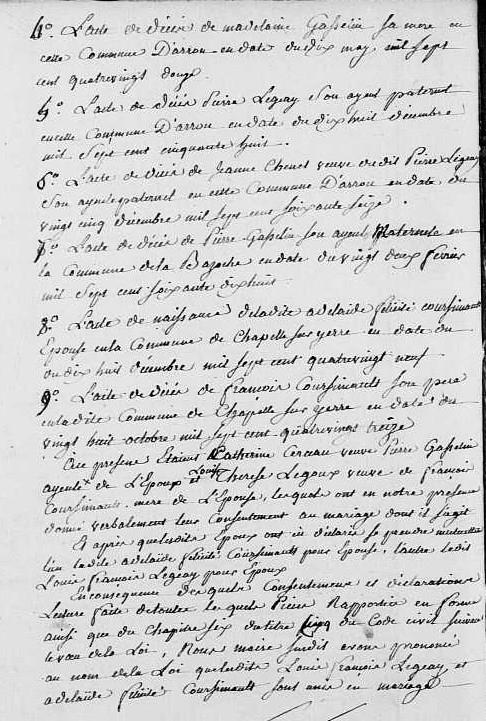 4°. L'acte de décès de madelaine Gasselin sa mere en
cette Commune D'arrou en date du dix may mil sept
cent quatrevingt douze.
5°. L'acte de décès Pierre Legeay son ayeul paternel
en cette Commune D'arrou en date du dix huit décembre
mil sept cent cinquante huit.
6°. L'acte de décès de Jeanne Chenet veuve dudit Pierre Legeay
son ayeule paternel en cette Commune D'arrou en date du
vingt cinq décembre mil sept cent soixante seize.
7°. L'acte de décès de Pierre Gasselin son ayeul Maternel en
la Commune de la Bazoche en date du vingt deux février
mil sept cent soixante dix huit.
8°. L'acte de naissance de ladite adelaide félicité Coursimault
Epouse en la Commune de Chapelle sur yerre en date du
dix huit décembre mil sept cent quatrevingt neuf.
9°. L'acte de décès de françois Coursimault son pere
en ladite Commune de Chapelle sur yerre en date du
vingt huit octobre mil sept cent quatrevingt treize
Ont presens Etaient Catherine Cerceau veuve Pierre Gasselin
ayeule Mle de L'Epoux et Louise Therese Legoux veuve de françois
Coursimault mere de L'Epouse, lesquels ont en notre présence
donné verbalement leur Consentement au mariage dont il s'agit
Et après que lesdits Epoux ont eu déclaré se prendre mutuellement
L'un ladite adelaide félicité Coursimault pour Epouse, L'autre ledit
Louis françois Legeay pour Epoux
En consequence desquels Consentement et déclarations
Lecture faite de toutes lesquels Pieces Rapportées en forme
ainsi que du Chapitre six du titre cinq du Code civil suivant
le vœu de la Loi, Nous maire susdit avons prononcé
au nom de la Loi que lesdits Louis françois Legeay, et
adelaide félicité Coursimault sont unis en mariage